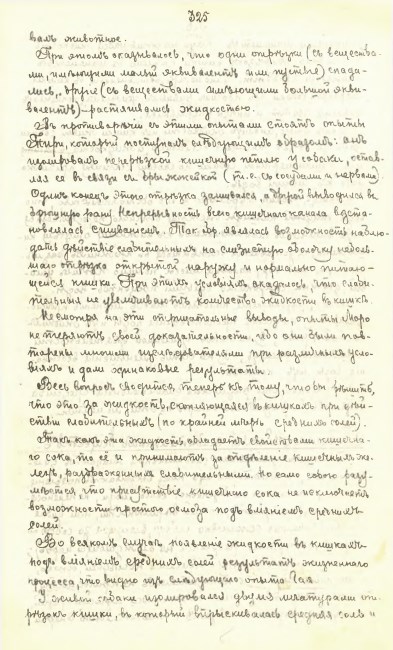 325
валъ животное.
При этомъ оказывалось, что одни отрѣзки (съ вещества-
ми, имѣющими малый эквивалентъ или пустые) спада-
лись, другіе (съ веществами имѣющими большой экви-
валентъ) – растягивались жидкостью.
Въ противорѣчіи съ этими опытами стоятъ опыты
Тири, который поступалъ слѣдующимъ образомъ: онъ
изолировалъ перерѣзкой кишечную петлю у собаки, остав-
ляя ее въ связи съ брыжжейкой (т.е. съ сосудами и нервами).
Одинъ конецъ этого отрѣзка зашивался, а другой выводился въ
брюшную рану. Непрерывность всего кишечнаго канала возста-
новлялась сшиваніемъ. Так. обр. являлась возможность наблю-
дать дѣйствіе слабительныхъ на слизистую оболочку неболь-
шаго отрѣзка открытой наружу и нормально питаю-
щейся кишки. При этихъ условіяхъ оказалось, что слаби-
тельныя не увеличиваютъ количество жидкости въ кишкѣ.
Несмотря на эти отрицательные выводы, опыты Моро
не теряютъ своей доказательности, ибо они были пов-
торены многими изслѣдователями при различныхъ усло-
віяхъ и дали одинаковые результаты.
Весь вопросъ сводится теперь къ тому, чтобы рѣшить,
что это за жидкость, скопляющаяся въ кишкахъ при дѣй-
ствіи слабительныхъ (по крайней мѣрѣ среднихъ солей).
Такъ какъ эта жидкость обладаетъ свойствами кишечна-
го сока, то её и принимаютъ за отдѣленіе кишечныхъ же-
лезъ, раздраженныхъ слабительными. Но само собою разу-
мѣется, что присутствіе кишечнаго сока не исключаетъ
возможности простого осмоза подъ вліяніемъ среднихъ
солей.
Во всякомъ случаѣ появленіе жидкости въ кишкахъ
подъ вліяніемъ среднихъ солей результатъ жизненнаго
процесса, что видно изъ слѣдующаго опыта Гая
У живой собаки изолировался двумя лигатурами от-
рѣзокъ кишки, въ который впрыскивалась средняя соль и